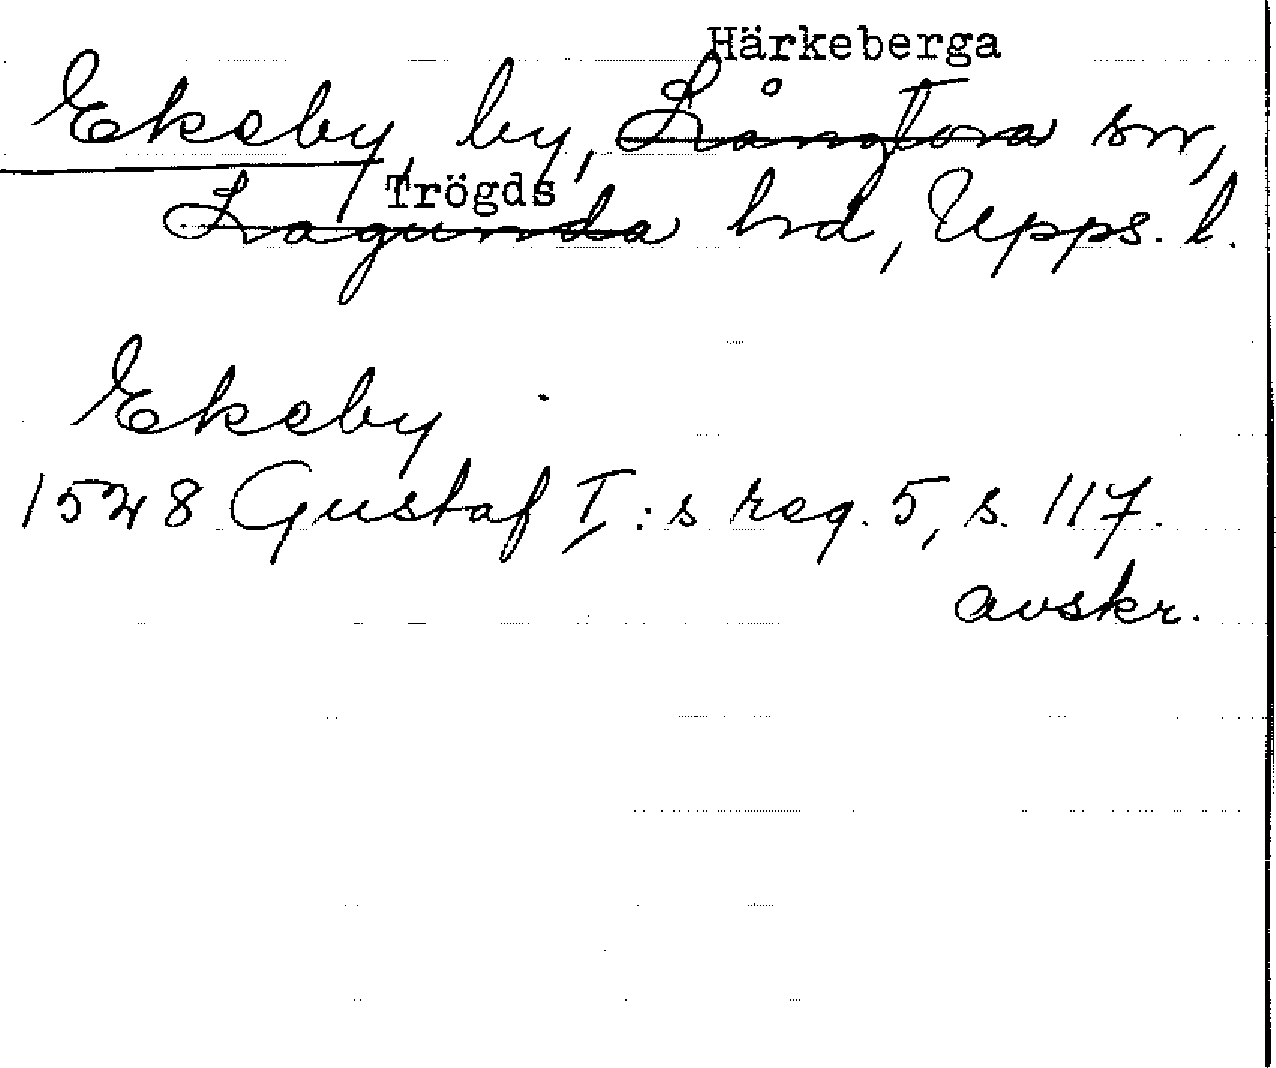 Härkeberga
Ekeby, by, Långtora sn,
Trögds
Lagunda hd, Upps. l.
Ekeby
1528 Gustaf I:s reg. 5, s. 117.
avskr.